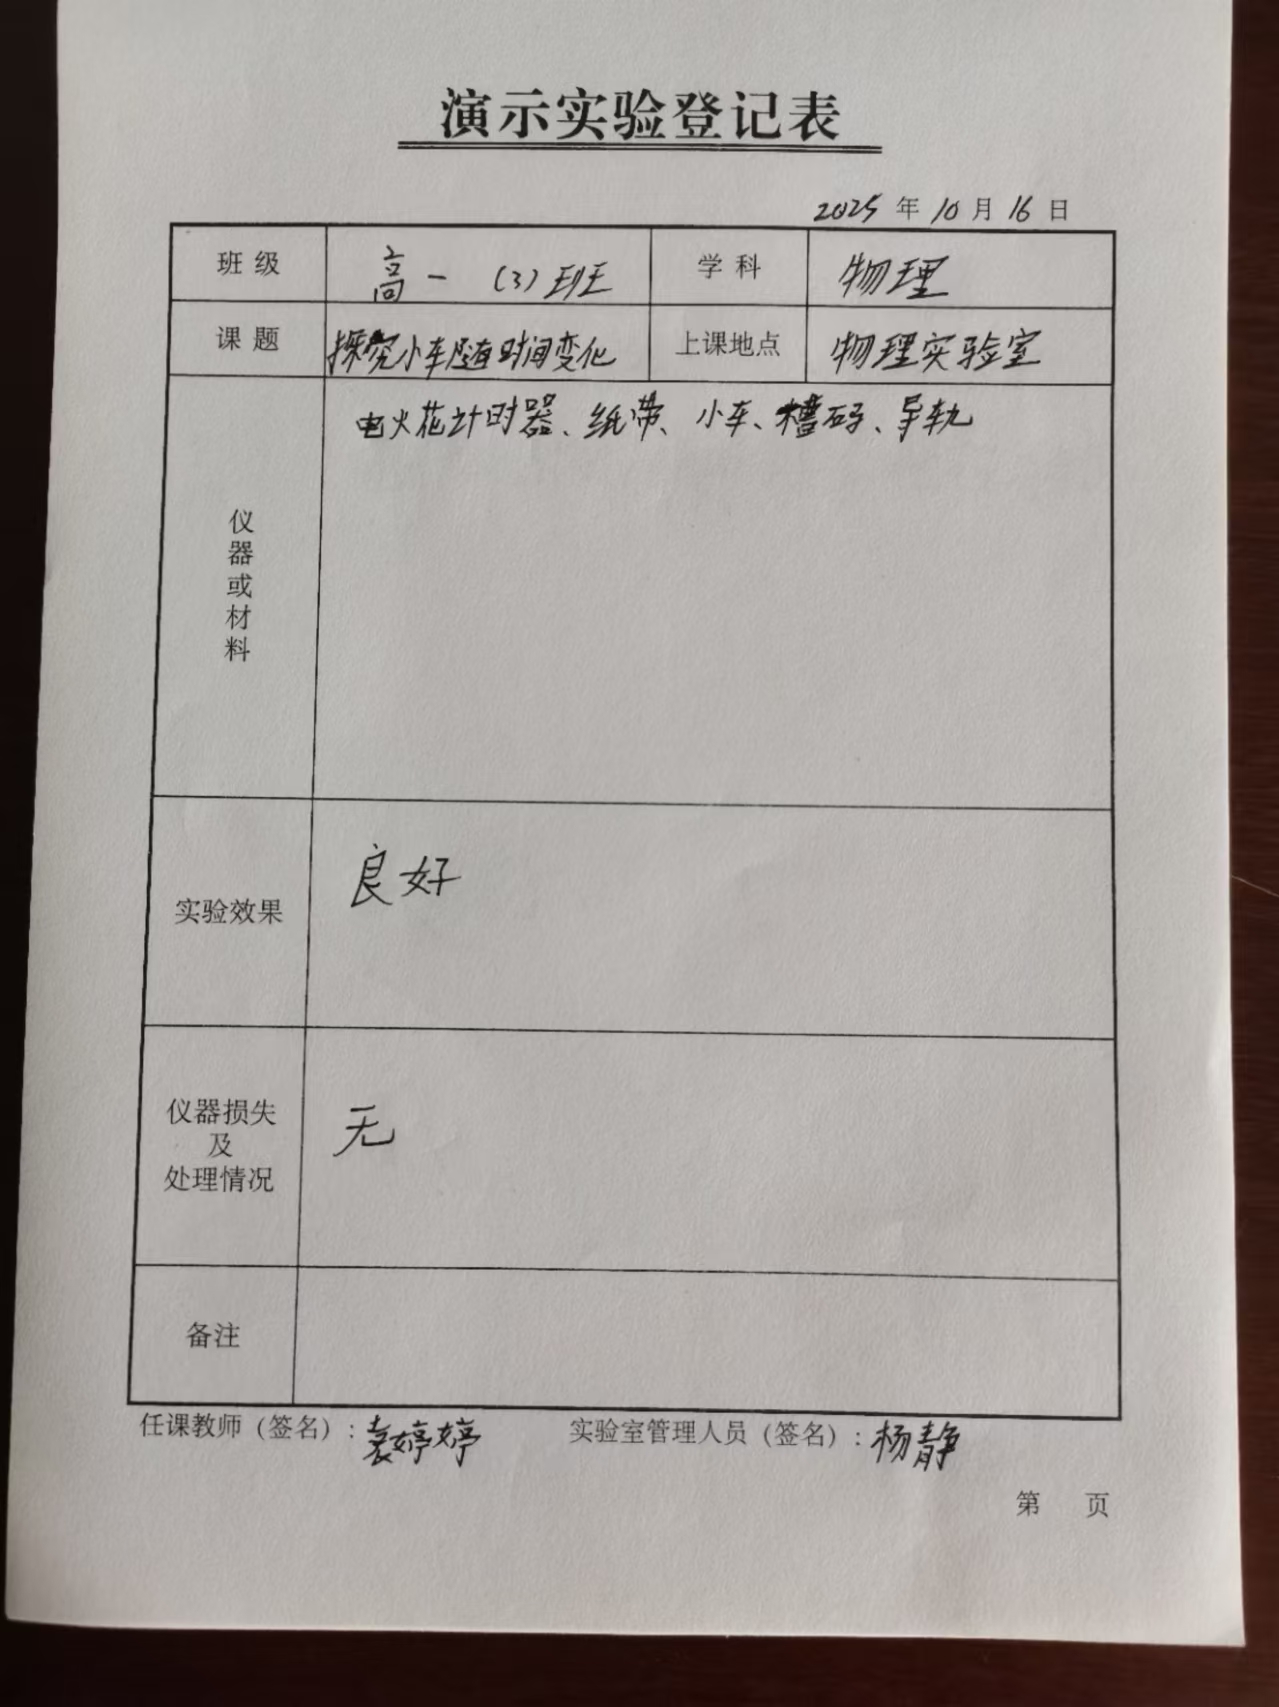 演示实验登记表
2025年10月16日
班级 高一(3)班 学科 物理
课题 探究小车随时间变化 上课地点 物理实验室
仪器或材料 电火花计时器、纸带、小车、槽码、导轨
实验效果 良好
仪器损失
及
处理情况 无
备注
任课教师(签名):袁婷婷 实验室管理人员(签名):杨静
第 页